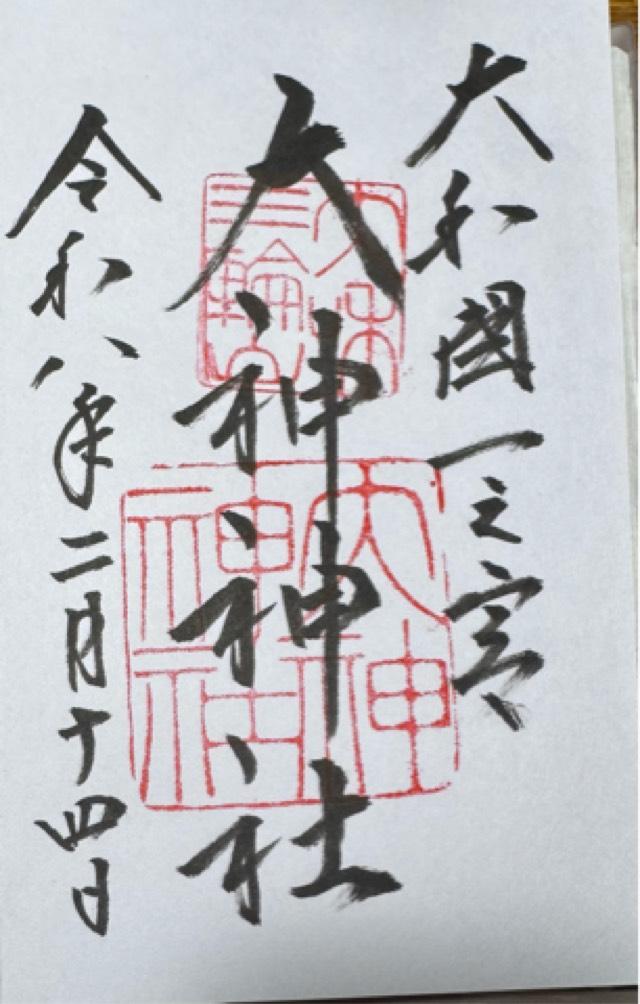 大和國一之宮
大神神社
令和八年二月十四日
大和
三輪山
大神
神社